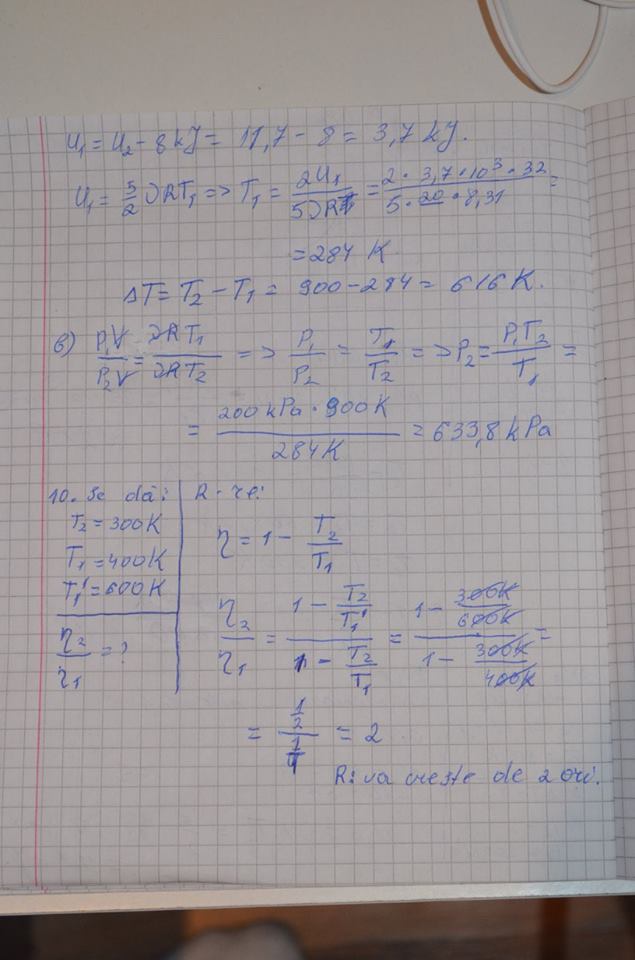 U₁ = U₂ - 8 kJ = 11,7 - 8 = 3,7 kJ.
U₁ = 5/2 νRT₁ => T₁ = 2U₁/5νR = 2 · 3,7 · 10³ · 32/5 · 20 · 8,31 =
= 284 K
ΔT = T₂ - T₁ = 900 - 284 = 616 K.
в) P₁V/P₂V = νRT₁/νRT₂ => P₁/P₂ = T₁/T₂ => P₂ = P₁T₂/T₁ =
= 200 kPa · 900K/284K = 633,8 kPa
10. Se dă: R-re:
T₂ = 300K
T₁ = 400K
T₁' = 600K
η₂/η₁ = ?
η = 1 - T₂/T₁
η₂/η₁ = (1 - T₂/T₁')/(1 - T₂/T₁) = (1 - 300K/600K)/(1 - 300K/400K) =
= (1/2)/(1/4) = 2
R: va crește de 2 ori.